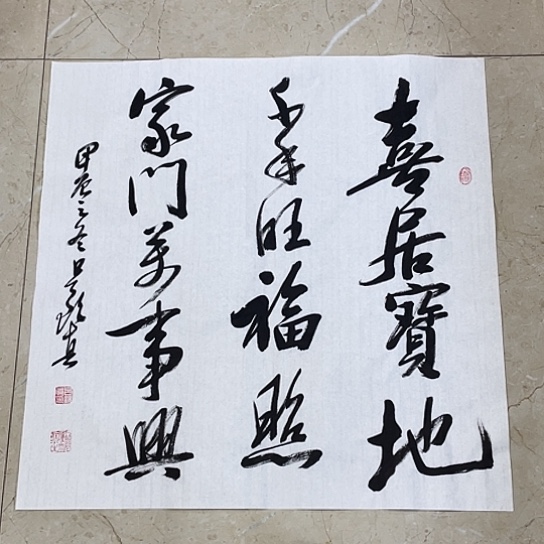 喜居寶地
千年旺福照
家門萬事興
甲辰之冬